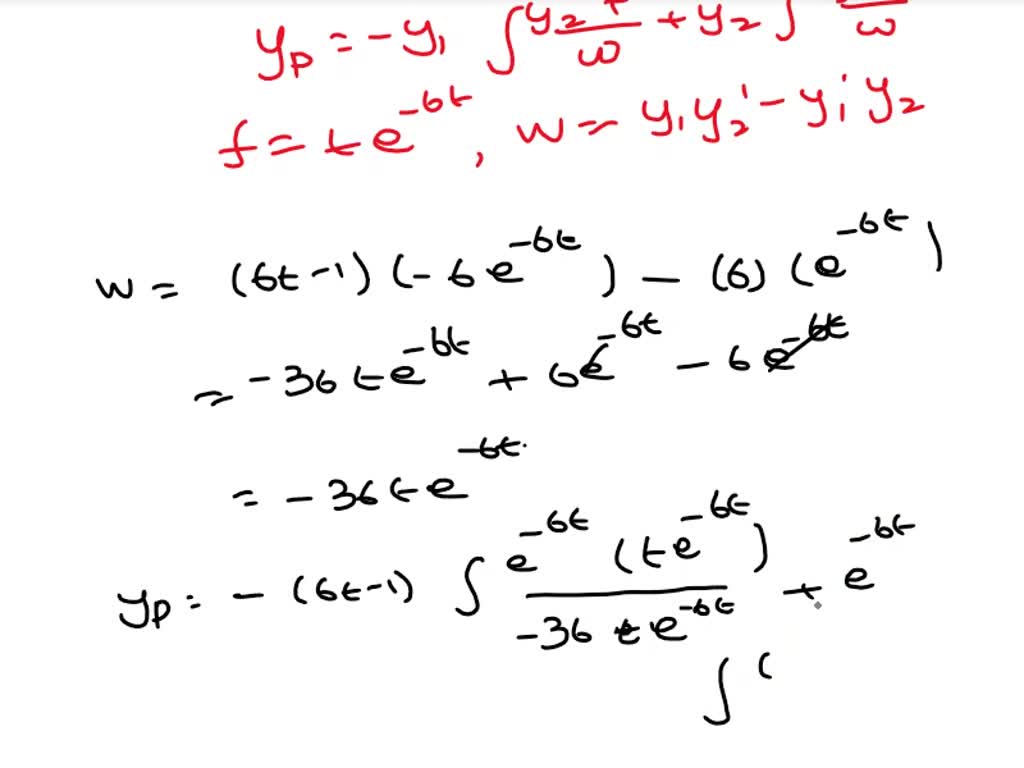 yp = -y₁ ∫ y₂f/w + y₂ ∫ /w
f = te^-6t, w = y₁y₂' - y₁'y₂
w = (6t-1)(-6e^-6t) - (6)(e^-6t)
= -36te^-6t + 6e^-6t - 6e^-6t
= -36te^-6t
yp = -(6t-1) ∫ e^-6t (te^-6t) / -36te^-6t + e^-6t
∫ (